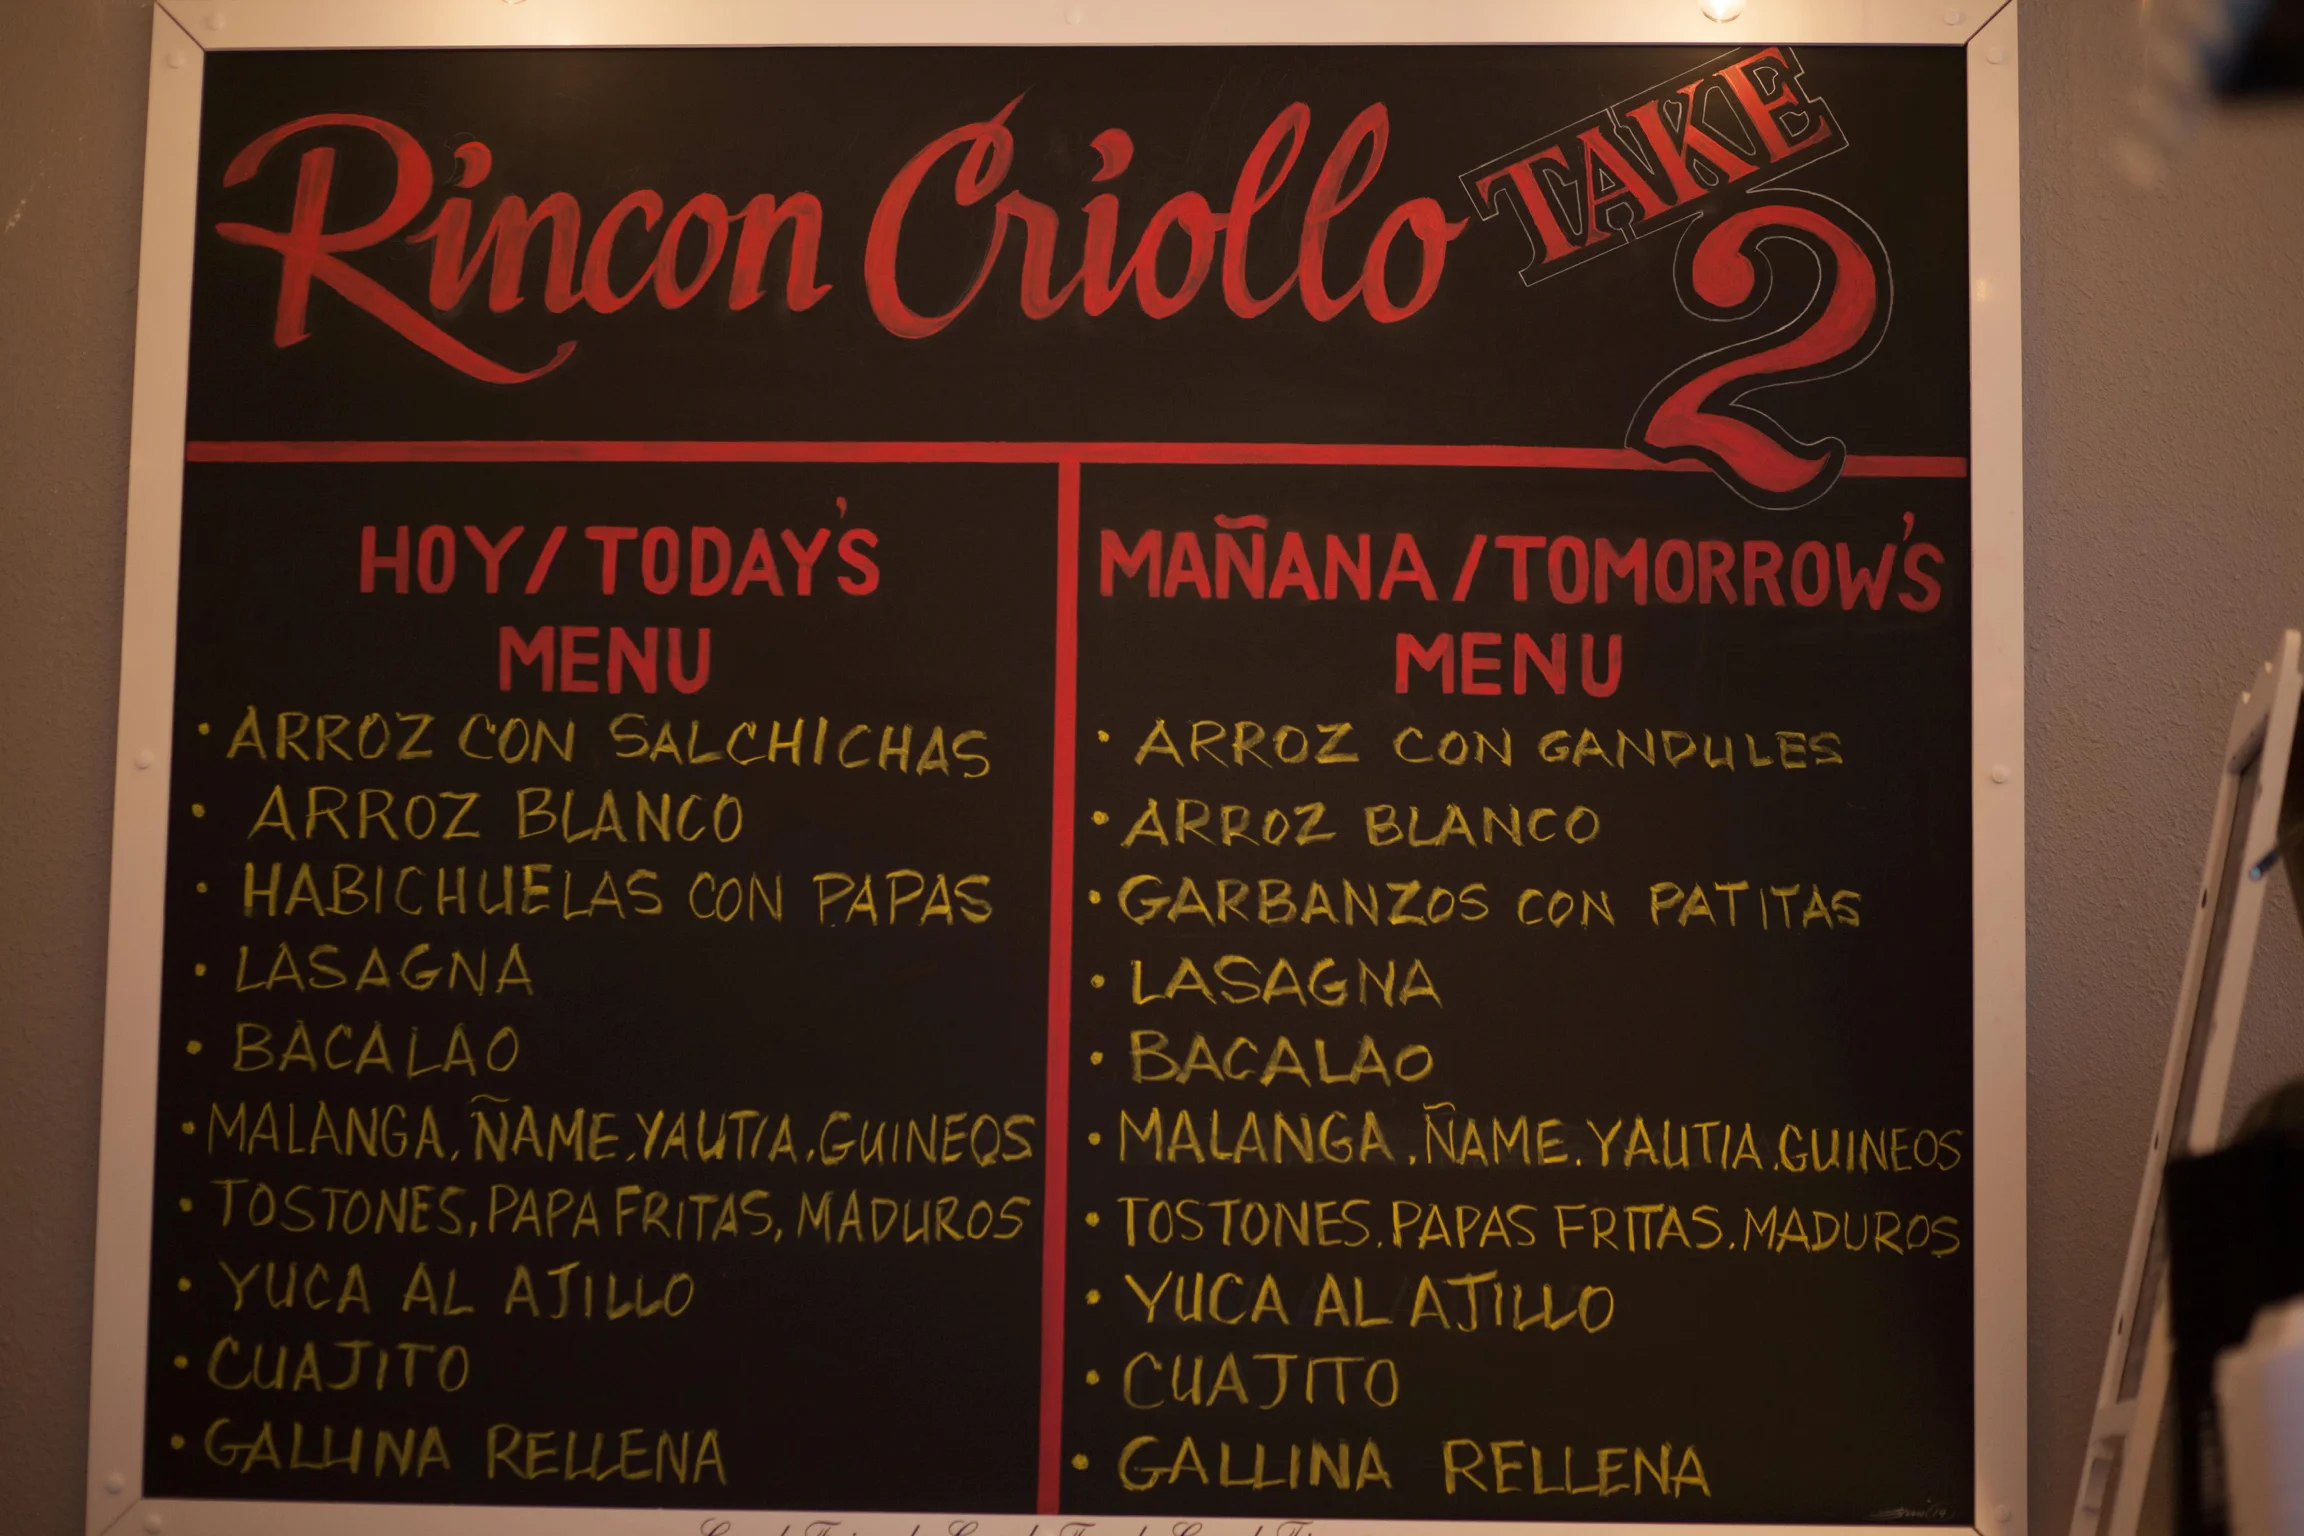 Rincon Criollo TAKE
2
HOY/TODAY'S
MENU
• ARROZ CON SALCHICHAS
• ARROZ BLANCO
• HABICHUELAS CON PAPAS
• LASAGNA
• BACALAO
• MALANGA, ÑAME, YAUTIA, GUINEOS
• TOSTONES, PAPA FRITAS, MADUROS
• YUCA AL AJILLO
• CUAJITO
• GALLINA RELLENA
MAÑANA/TOMORROW'S
MENU
• ARROZ CON GANDULES
• ARROZ BLANCO
• GARBANZOS CON PATITAS
• LASAGNA
• BACALAO
• MALANGA, ÑAME. YAUTIA, GUINEOS
• TOSTONES, PAPAS FRITAS, MADUROS
• YUCA AL AJILLO
• CUAJITO
• GALLINA RELLENA